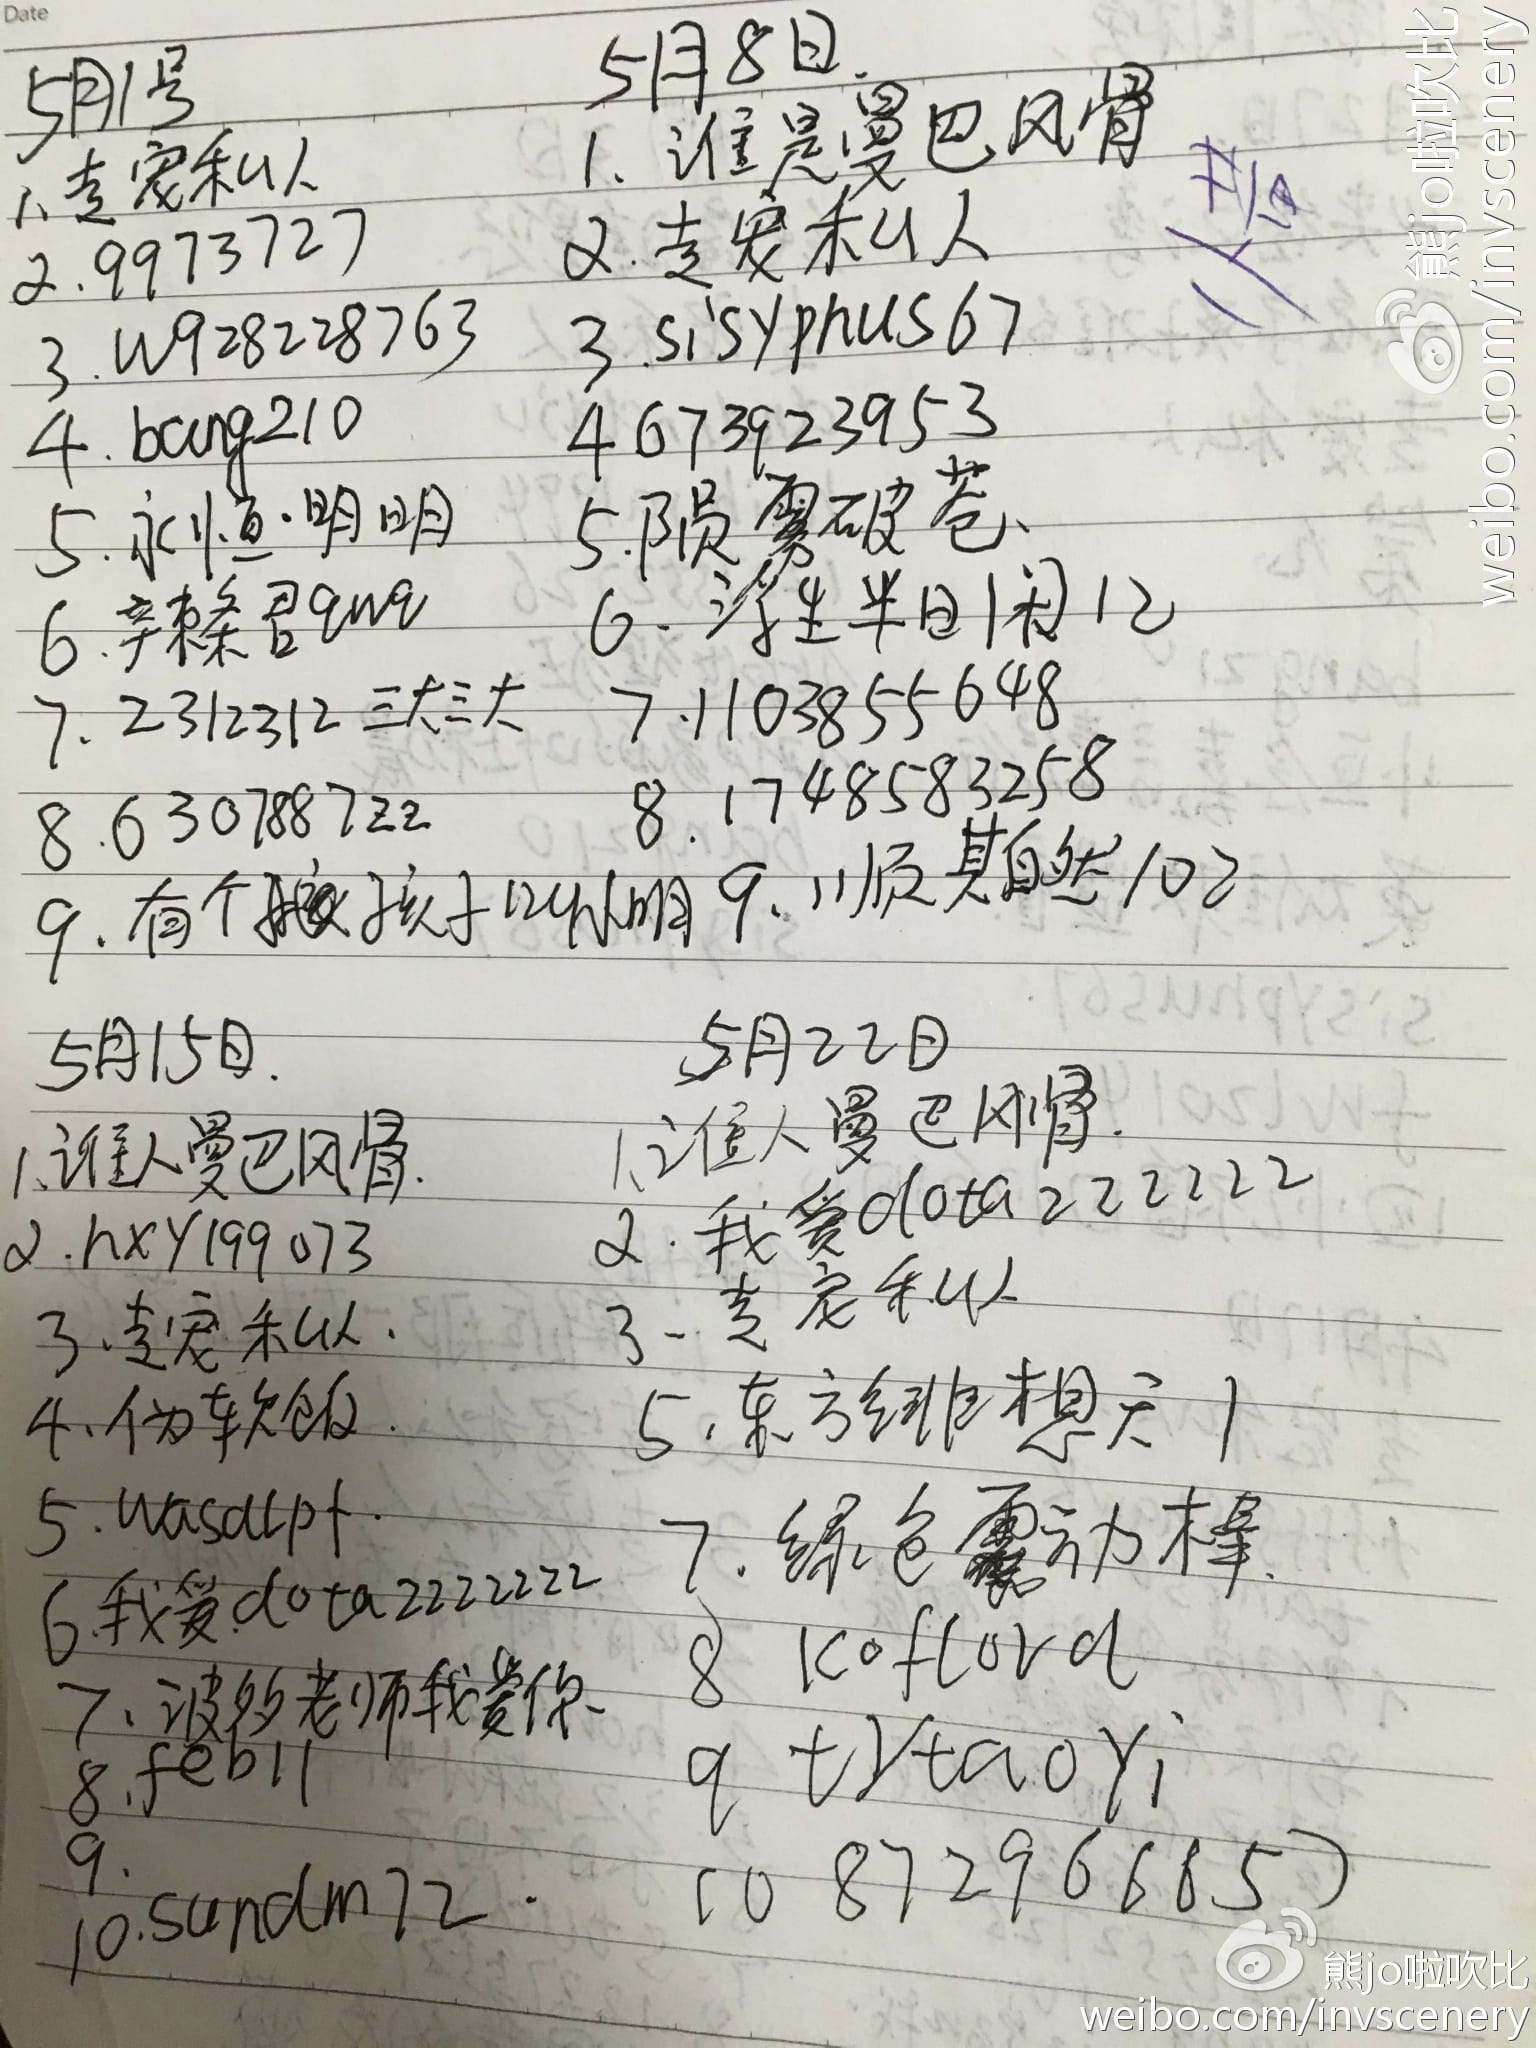 Date
5月1号
1、走宠私人
2.9973727
3.w928228763
4.bang210
5.永恒·明明
6.辛辣条君qwq
7.2312312三大三大
8.6307887zz
9.有个孩子叫小明
5月8日.
1、谁是曼巴风骨
2.走宠私人
3.sisyphus67
4 6739223953
5.陨雾破苍、
6.浮生半日闲12
7.1103855648
8.1748583258
9、顺其自然102
5月15日.
1、谁人曼巴风骨.
2.hxy199073
3.走宠私人.
4、伪软饭.
5.wasdlpt.
6.我爱dota2222222
7、波多老师我爱你、
8.feb11
9.
10.sundm72.
5月22日
1、谁人曼巴风骨.
2.我爱dota222222
3-走宠私人
5、东方绯想天1
7.绿色震动棒.
8 koflord
9 tytaoyi
10 8729666857
熊jo啦吹比
weibo.com/invscenery
熊jo啦吹比
weibo.com/invscenery